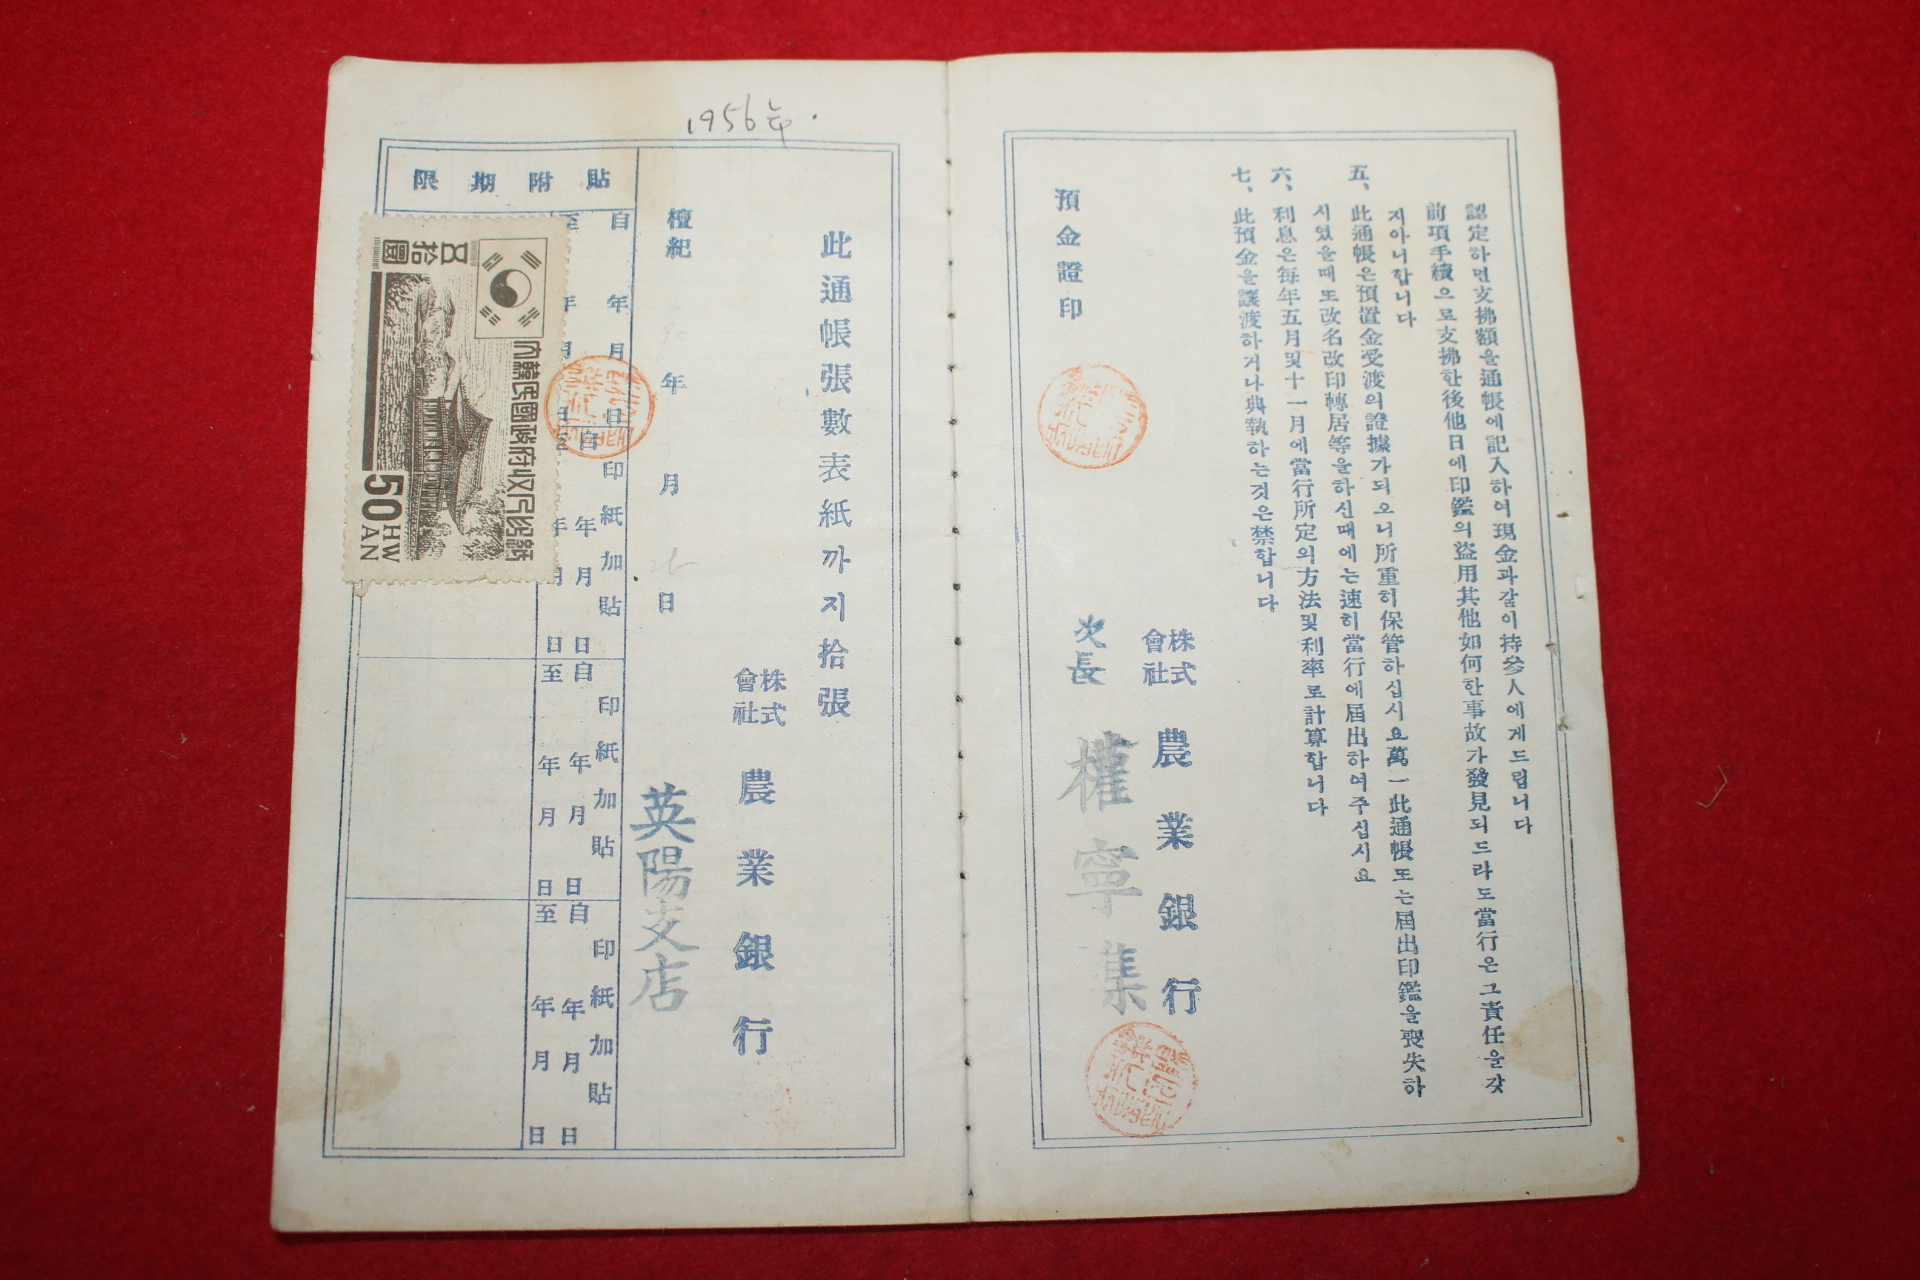 認定하면支拂額을通帳에記入하여現金과같이持參人에게드립니다
前項手續으로支拂한後他日에印鑑의盜用其他如何한事故가發見되드라도當行은그責任을갖
지아니합니다
五、此通帳은預置金受渡의證據가되오니所重히保管하십시요萬一此通帳또는屆出印鑑을喪失하
시였을때또改名改印轉居等을하신때에는速히當行에屆出하여주십시요
六、利息은每年五月및十一月에當行所定의方法및利率로計算합니다
七、此預金을讓渡하거나典執하는것은禁합니다
株式會社 農業銀行
次長 權寧集
預金證印
1956年.
此通帳張數表紙까지拾張
株式會社 農業銀行
檀紀 年 月 日
英陽支店
貼附期限
自 年 月 日
至 年 月 日
印紙加貼
自 年 月 日
至 年 月 日
印紙加貼
自 年 月 日
至 年 月 日
印紙加貼
自 年 月 日
至 年 月 日
五拾圜
大韓民國政府收入印紙
50 HWAN